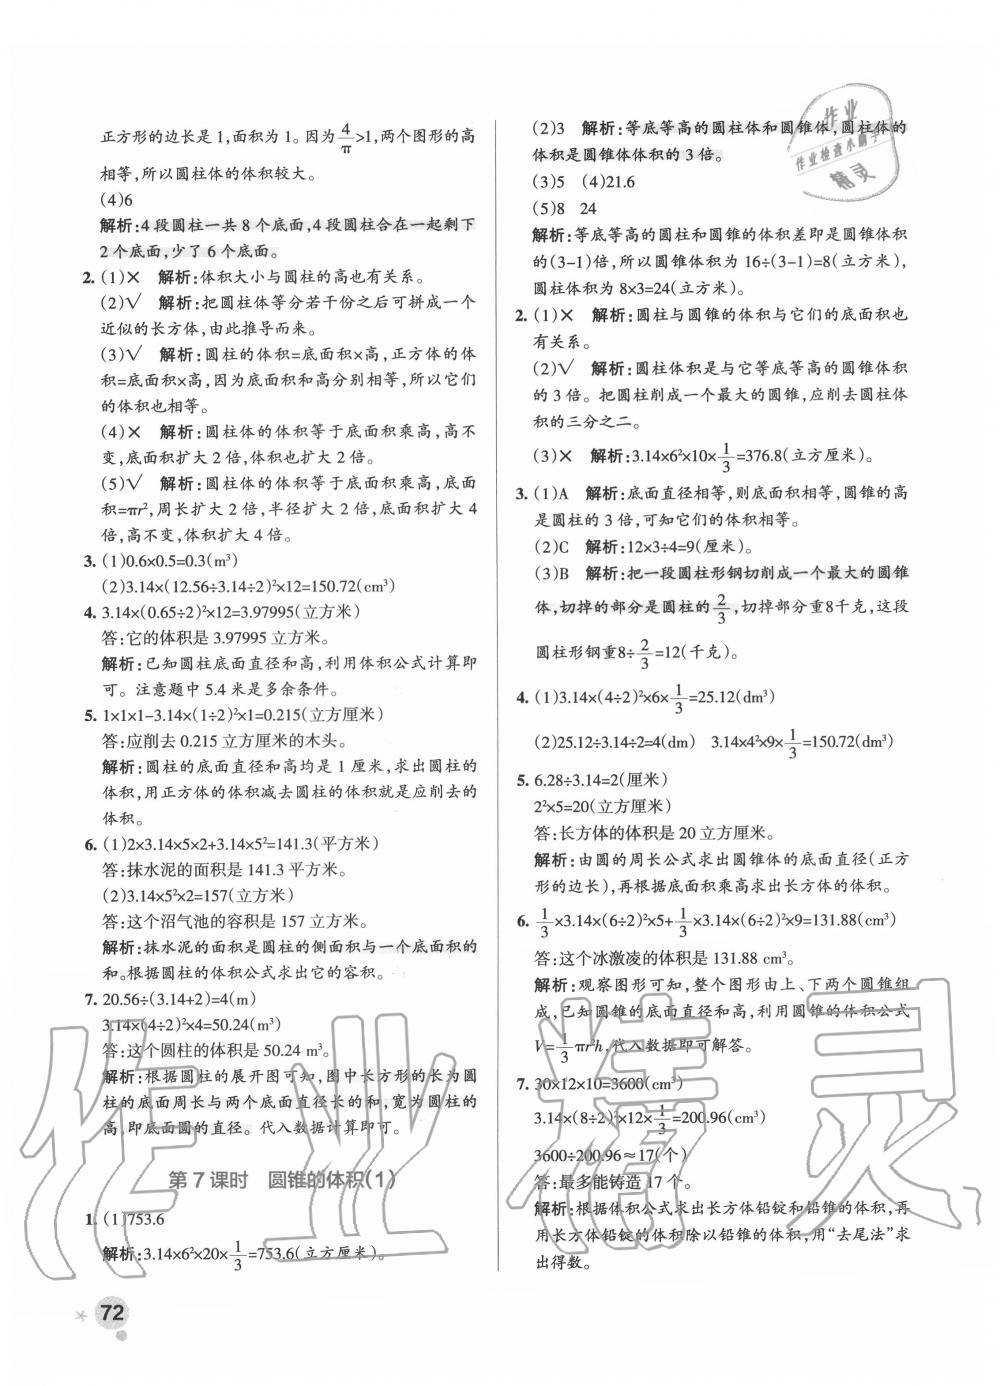 正方形的边长是 1,面积为 1。因为4/π>1,两个图形的高
相等,所以圆柱体的体积较大。
(4)6
解析:4 段圆柱一共 8 个底面,4 段圆柱合在一起剩下
2 个底面,少了 6 个底面。
2. (1)× 解析:体积大小与圆柱的高也有关系。
(2)√ 解析:把圆柱体等分若干份之后可拼成一个
近似的长方体,由此推导而来。
(3)√ 解析:圆柱的体积=底面积×高,正方体的体
积=底面积×高,因为底面积和高分别相等,所以它们
的体积也相等。
(4)× 解析:圆柱体的体积等于底面积乘高,高不
变,底面积扩大 2 倍,体积也扩大 2 倍。
(5)√ 解析:圆柱体的体积等于底面积乘高,底面
积=πr²,周长扩大 2 倍,半径扩大 2 倍,底面积扩大 4
倍,高不变,体积扩大 4 倍。
3. (1)0.6×0.5=0.3(m³)
(2)3.14×(12.56÷3.14÷2)²×12=150.72(cm³)
4. 3.14×(0.65÷2)²×12=3.97995(立方米)
答:它的体积是 3.97995 立方米。
解析:已知圆柱底面直径和高,利用体积公式计算即
可。注意题中 5.4 米是多余条件。
5. 1×1×1-3.14×(1÷2)²×1=0.215(立方厘米)
答:应削去 0.215 立方厘米的木头。
解析:圆柱的底面直径和高均是 1 厘米,求出圆柱的
体积,用正方体的体积减去圆柱的体积就是应削去的
体积。
6. (1)2×3.14×5×2+3.14×5²=141.3(平方米)
答:抹水泥的面积是 141.3 平方米。
(2)3.14×5²×2=157(立方米)
答:这个沼气池的容积是 157 立方米。
解析:抹水泥的面积是圆柱的侧面积与一个底面积的
和。根据圆柱的体积公式求出它的容积。
7. 20.56÷(3.14+2)=4(m)
3.14×(4÷2)²×4=50.24(m³)
答:这个圆柱的体积是 50.24 m³。
解析:根据圆柱的展开图可知,图中长方形的长为圆
柱的底面周长与两个底面直径长的和,宽为圆柱的
高,即底面圆的直径。代入数据计算即可。
第 7 课时 圆锥的体积(1)
1. (1)753.6
解析:3.14×6²×20×1/3=753.6(立方厘米)。
72
(2)3 解析:等底等高的圆柱体和圆锥体,圆柱体的
体积是圆锥体体积的 3 倍。
(3)5 (4)21.6
(5)8 24
解析:等底等高的圆柱和圆锥的体积差即是圆锥体积
的(3-1)倍,所以圆锥体积为 16÷(3-1)=8(立方米),
圆柱体积为 8×3=24(立方米)。
2. (1)× 解析:圆柱与圆锥的体积与它们的底面积也
有关系。
(2)√ 解析:圆柱体积是与它等底等高的圆锥体积
的 3 倍。把圆柱削成一个最大的圆锥,应削去圆柱体
积的三分之二。
(3)× 解析:3.14×6²×10×1/3=376.8(立方厘米)。
3. (1)A 解析:底面直径相等,则底面积相等,圆锥的高
是圆柱的 3 倍,可知它们的体积相等。
(2)C 解析:12×3÷4=9(厘米)。
(3)B 解析:把一段圆柱形钢切削成一个最大的圆锥
体,切掉的部分是圆柱的2/3,切掉部分重8千克,这段
圆柱形钢重8÷2/3=12(千克)。
4. (1)3.14×(4÷2)²×6×1/3=25.12(dm³)
(2)25.12÷3.14÷2=4(dm) 3.14×4²×9×1/3=150.72(dm³)
5. 6.28÷3.14=2(厘米)
2²×5=20(立方厘米)
答:长方体的体积是 20 立方厘米。
解析:由圆的周长公式求出圆锥体的底面直径(正方
形的边长),再根据底面积乘高求出长方体的体积。
6. 1/3×3.14×(6÷2)²×5+1/3×3.14×(6÷2)²×9=131.88(cm³)
答:这个冰激凌的体积是 131.88 cm³。
解析:观察图形可知,整个图形由上、下两个圆锥组
成,已知圆锥的底面直径和高,利用圆锥的体积公式
V=1/3πr²h,代入数据即可解答。
7. 30×12×10=3600(cm³)
3.14×(8÷2)²×12×1/3=200.96(cm³)
3600÷200.96≈17(个)
答:最多能铸造 17 个。
解析:根据体积公式求出长方体铅锭和铅锥的体积,再
用长方体铅锭的体积除以铅锥的体积,用“去尾法”求
出得数。
作业
作业检查小助手
精灵
作业精灵